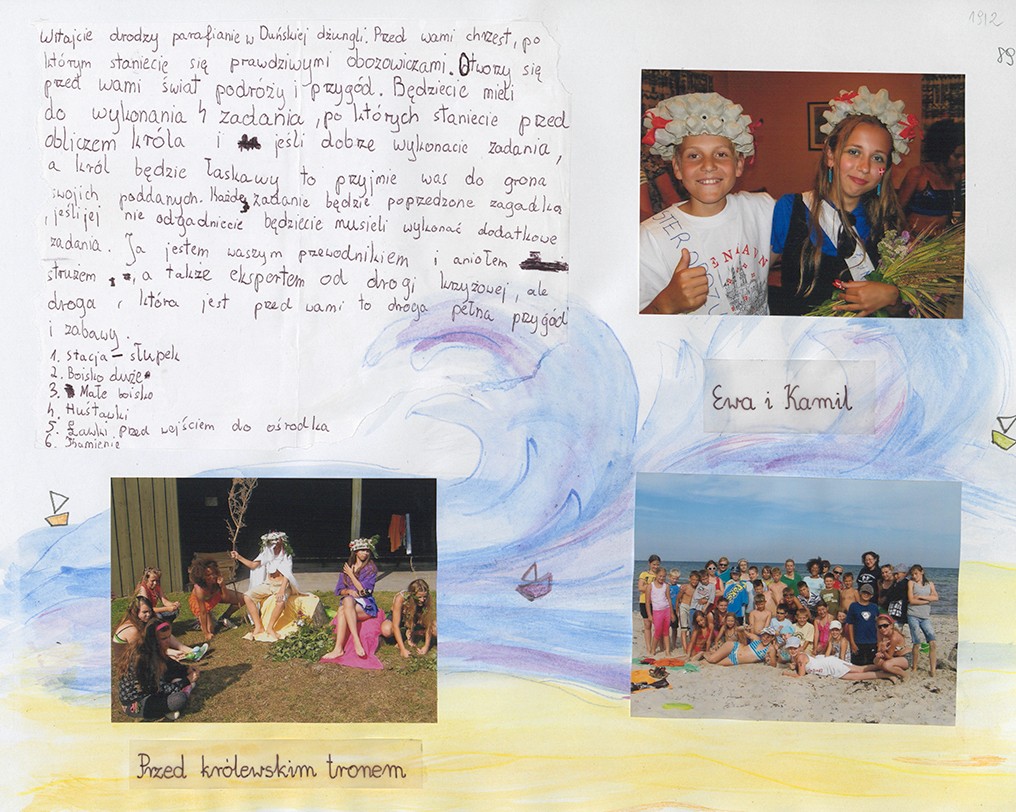 1912
89
Witajcie drodzy parafianie w Duńskiej dżungli. Przed wami chrzest, po
którym staniecie się prawdziwymi obozowiczami. Otworzy się
przed wami świat podróży i przygód. Będziecie mieli
do wykonania 4 zadania, po których staniecie przed
obliczem króla i jeśli dobrze wykonacie zadania,
a król będzie łaskawy to przyjmie was do grona
swoich poddanych. Każde zadanie będzie poprzedzone zagadką
, jeśli jej nie odgadniecie będziecie musieli wykonać dodatkowe
zadania. Ja jestem waszym przewodnikiem i aniołem
stróżem, a także ekspertem od drogi krzyżowej, ale
droga, która jest przed wami to droga pełna przygód
i zabawy.
1. Stacja – słupek
2. Boisko duże
3. Małe boisko
4. Huśtawki
5. Ławki przed wejściem do ośrodka
6. Kamienie
Ewa i Kamil
Przed królewskim tronem